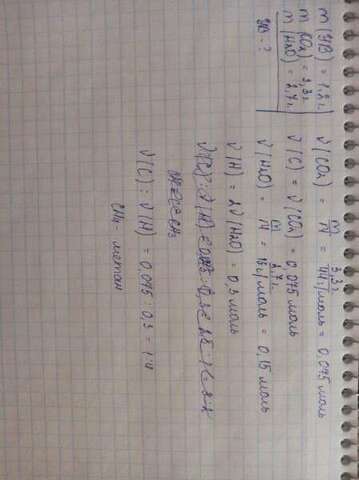 m(ЭВ) = 1.2 г.
m(CO₂) = 3,3 г
m(H₂O) = 2,7 г.
ЭВ - ?
ν(CO₂) = m/M = 3,3 г/44 г/моль = 0,075 моль
ν(C) = ν(CO₂) = 0,075 моль
ν(H₂O) = m/M = 2,7 г/18 г/моль = 0,15 моль
ν(H) = 2ν(H₂O) = 0,3 моль
ν(C) : ν(H) = 0,075 : 0,3 = 1:4
CH₄ - метан